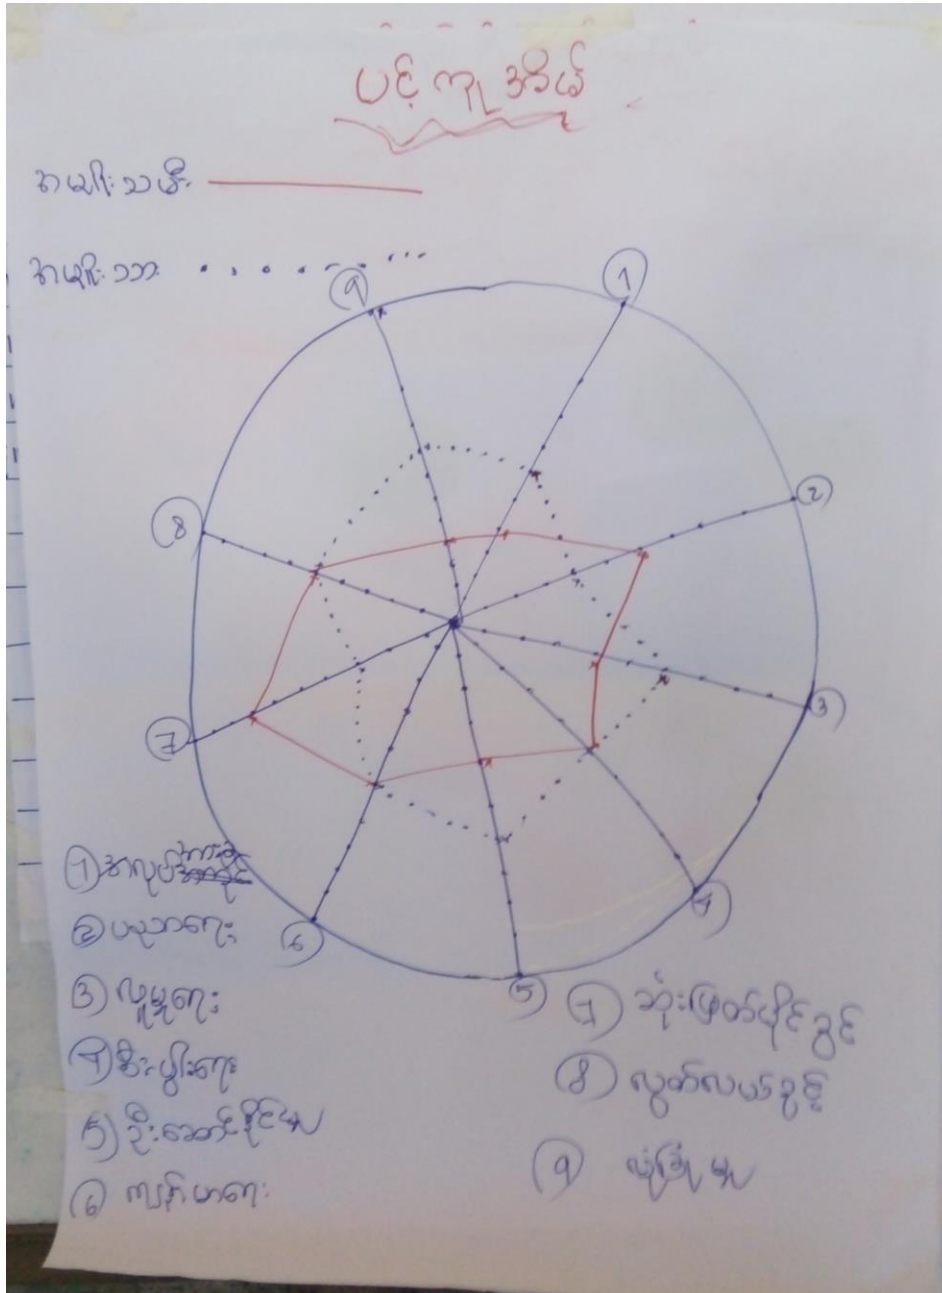 ပင့်ကူအိမ်
အမျိုးသမီး
အမျိုးသား
9
1
2
8
3
7
4
6
5
① အလုပ်
② ပညာရေး
③ လူမှုရေး
④ စီးပွါးရေး
⑤ ဦးဆောင်နိုင်မှု
⑥ ကျန်းမာရေး
⑦ ဆုံးဖြတ်ပိုင်ခွင့်
⑧ လွတ်လပ်ခွင့်
⑨ လုံခြုံမှု